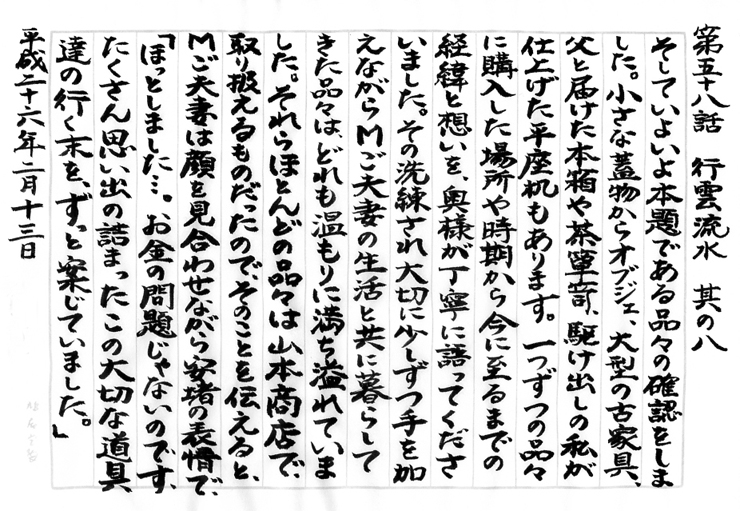 第五十八話　行雲流水　其の八
そしていよいよ本題である品々の確認をしま
した。小さな蓋物からオブジェ、大型の古家具、
父と届けた本箱や茶箪笥、駆け出しの私が
仕上げた平座机もあります。一つずつの品々
に購入した場所や時期から今に至るまでの
経緯と想いを、奥様が丁寧に語ってくださ
いました。その洗練され大切に少しずつ手を加
えながらMご夫妻の生活と共に暮らして
きた品々は、どれも温もりに満ち溢れていま
した。それらほとんどの品々は山本商店で、
取り扱えるものだったので、そのことを伝えると、
Mご夫妻は顔を見合わせながら安堵の表情で、
「ほっとしました…。お金の問題じゃないのです、
たくさん思い出の詰まったこの大切な道具
達の行く末を、ずっと案じていました。」
平成二十六年二月十三日